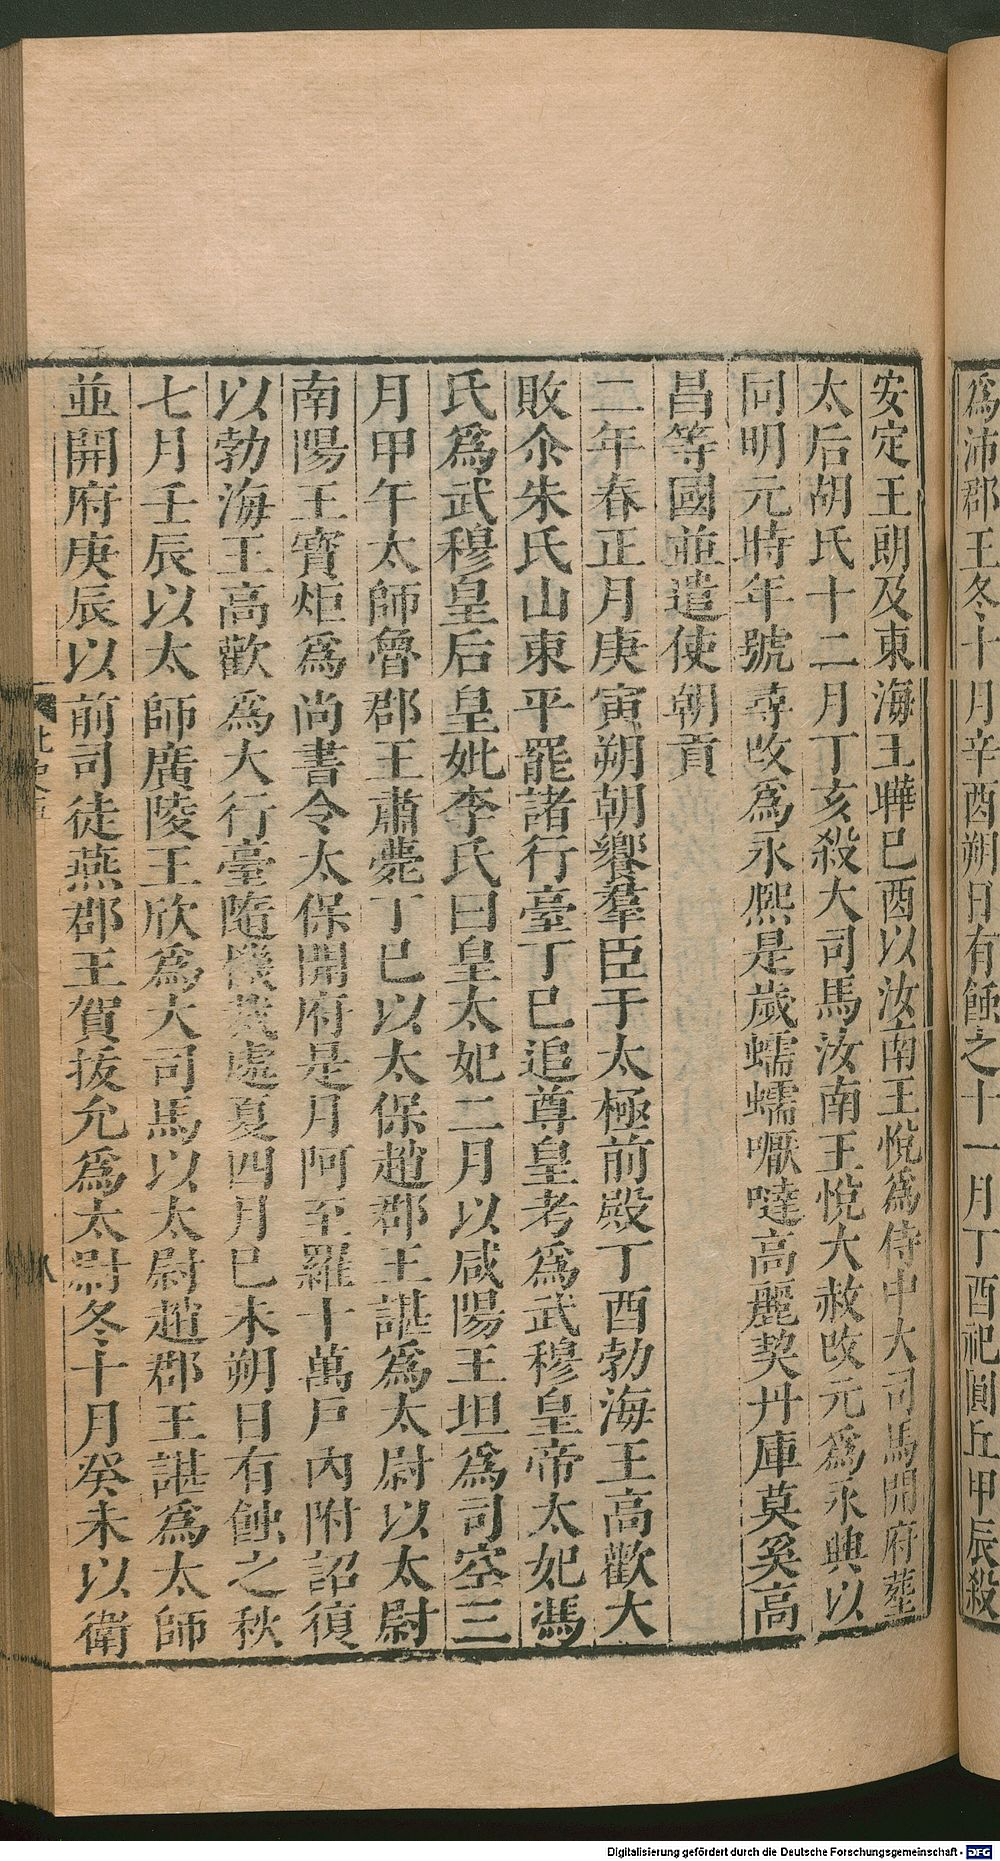 爲沛郡王冬十月辛酉朔日有蝕之十一月丁酉祀圓丘甲辰殺
安定王朗及東海王曄巳酉以汝南王悅爲侍中大司馬開府葬
太后胡氏十二月丁亥殺大司馬汝南王悅大赦改元爲永興以
同明元時年號尋改爲永熙是歲蠕蠕嚈噠高麗契丹庫莫奚高
昌等國並遣使朝貢
二年春正月庚寅朔朝饗羣臣于太極前殿丁酉勃海王高歡大
敗尒朱氏山東平罷諸行臺丁巳追尊皇考爲武穆皇帝太妃馮
氏爲武穆皇后皇妣李氏曰皇太妃二月以咸陽王坦爲司空三
月甲午太師魯郡王肅薨丁巳以太保趙郡王諶爲太尉以太尉
南陽王寳炬爲尚書令太保開府是月阿至羅十萬戸內附詔復
以勃海王高歡爲大行臺隨機裁處夏四月巳未朔日有蝕之秋
七月壬辰以太師廣陵王欣爲大司馬以太尉趙郡王諶爲太師
並開府庚辰以前司徒燕郡王賀拔允爲太尉冬十月癸未以衛
北史五
八
Digitalisierung gefördert durch die Deutsche Forschungsgemeinschaft - DFG